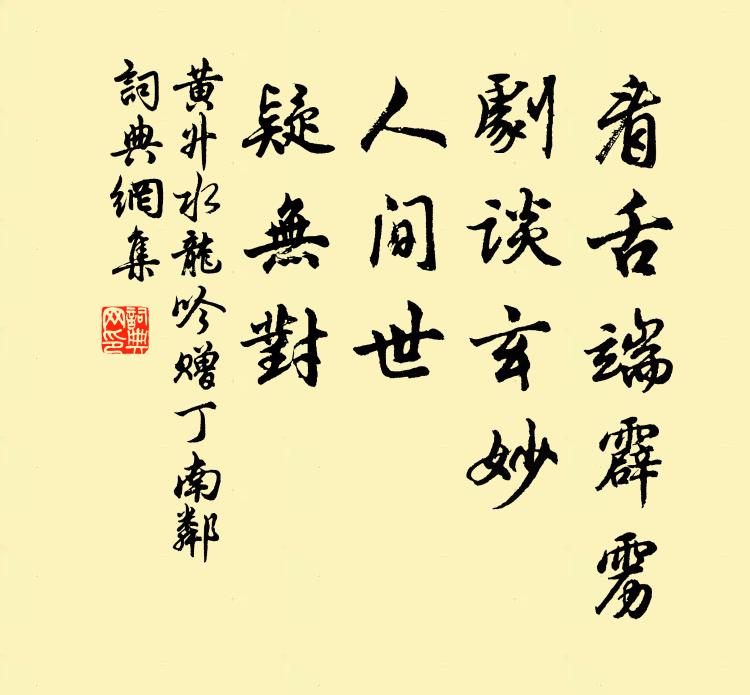 看舌端霹雳
劇談玄妙
人間世
疑無對
黄升水龍吟贈丁南鄰
詞典網集
詞典网印